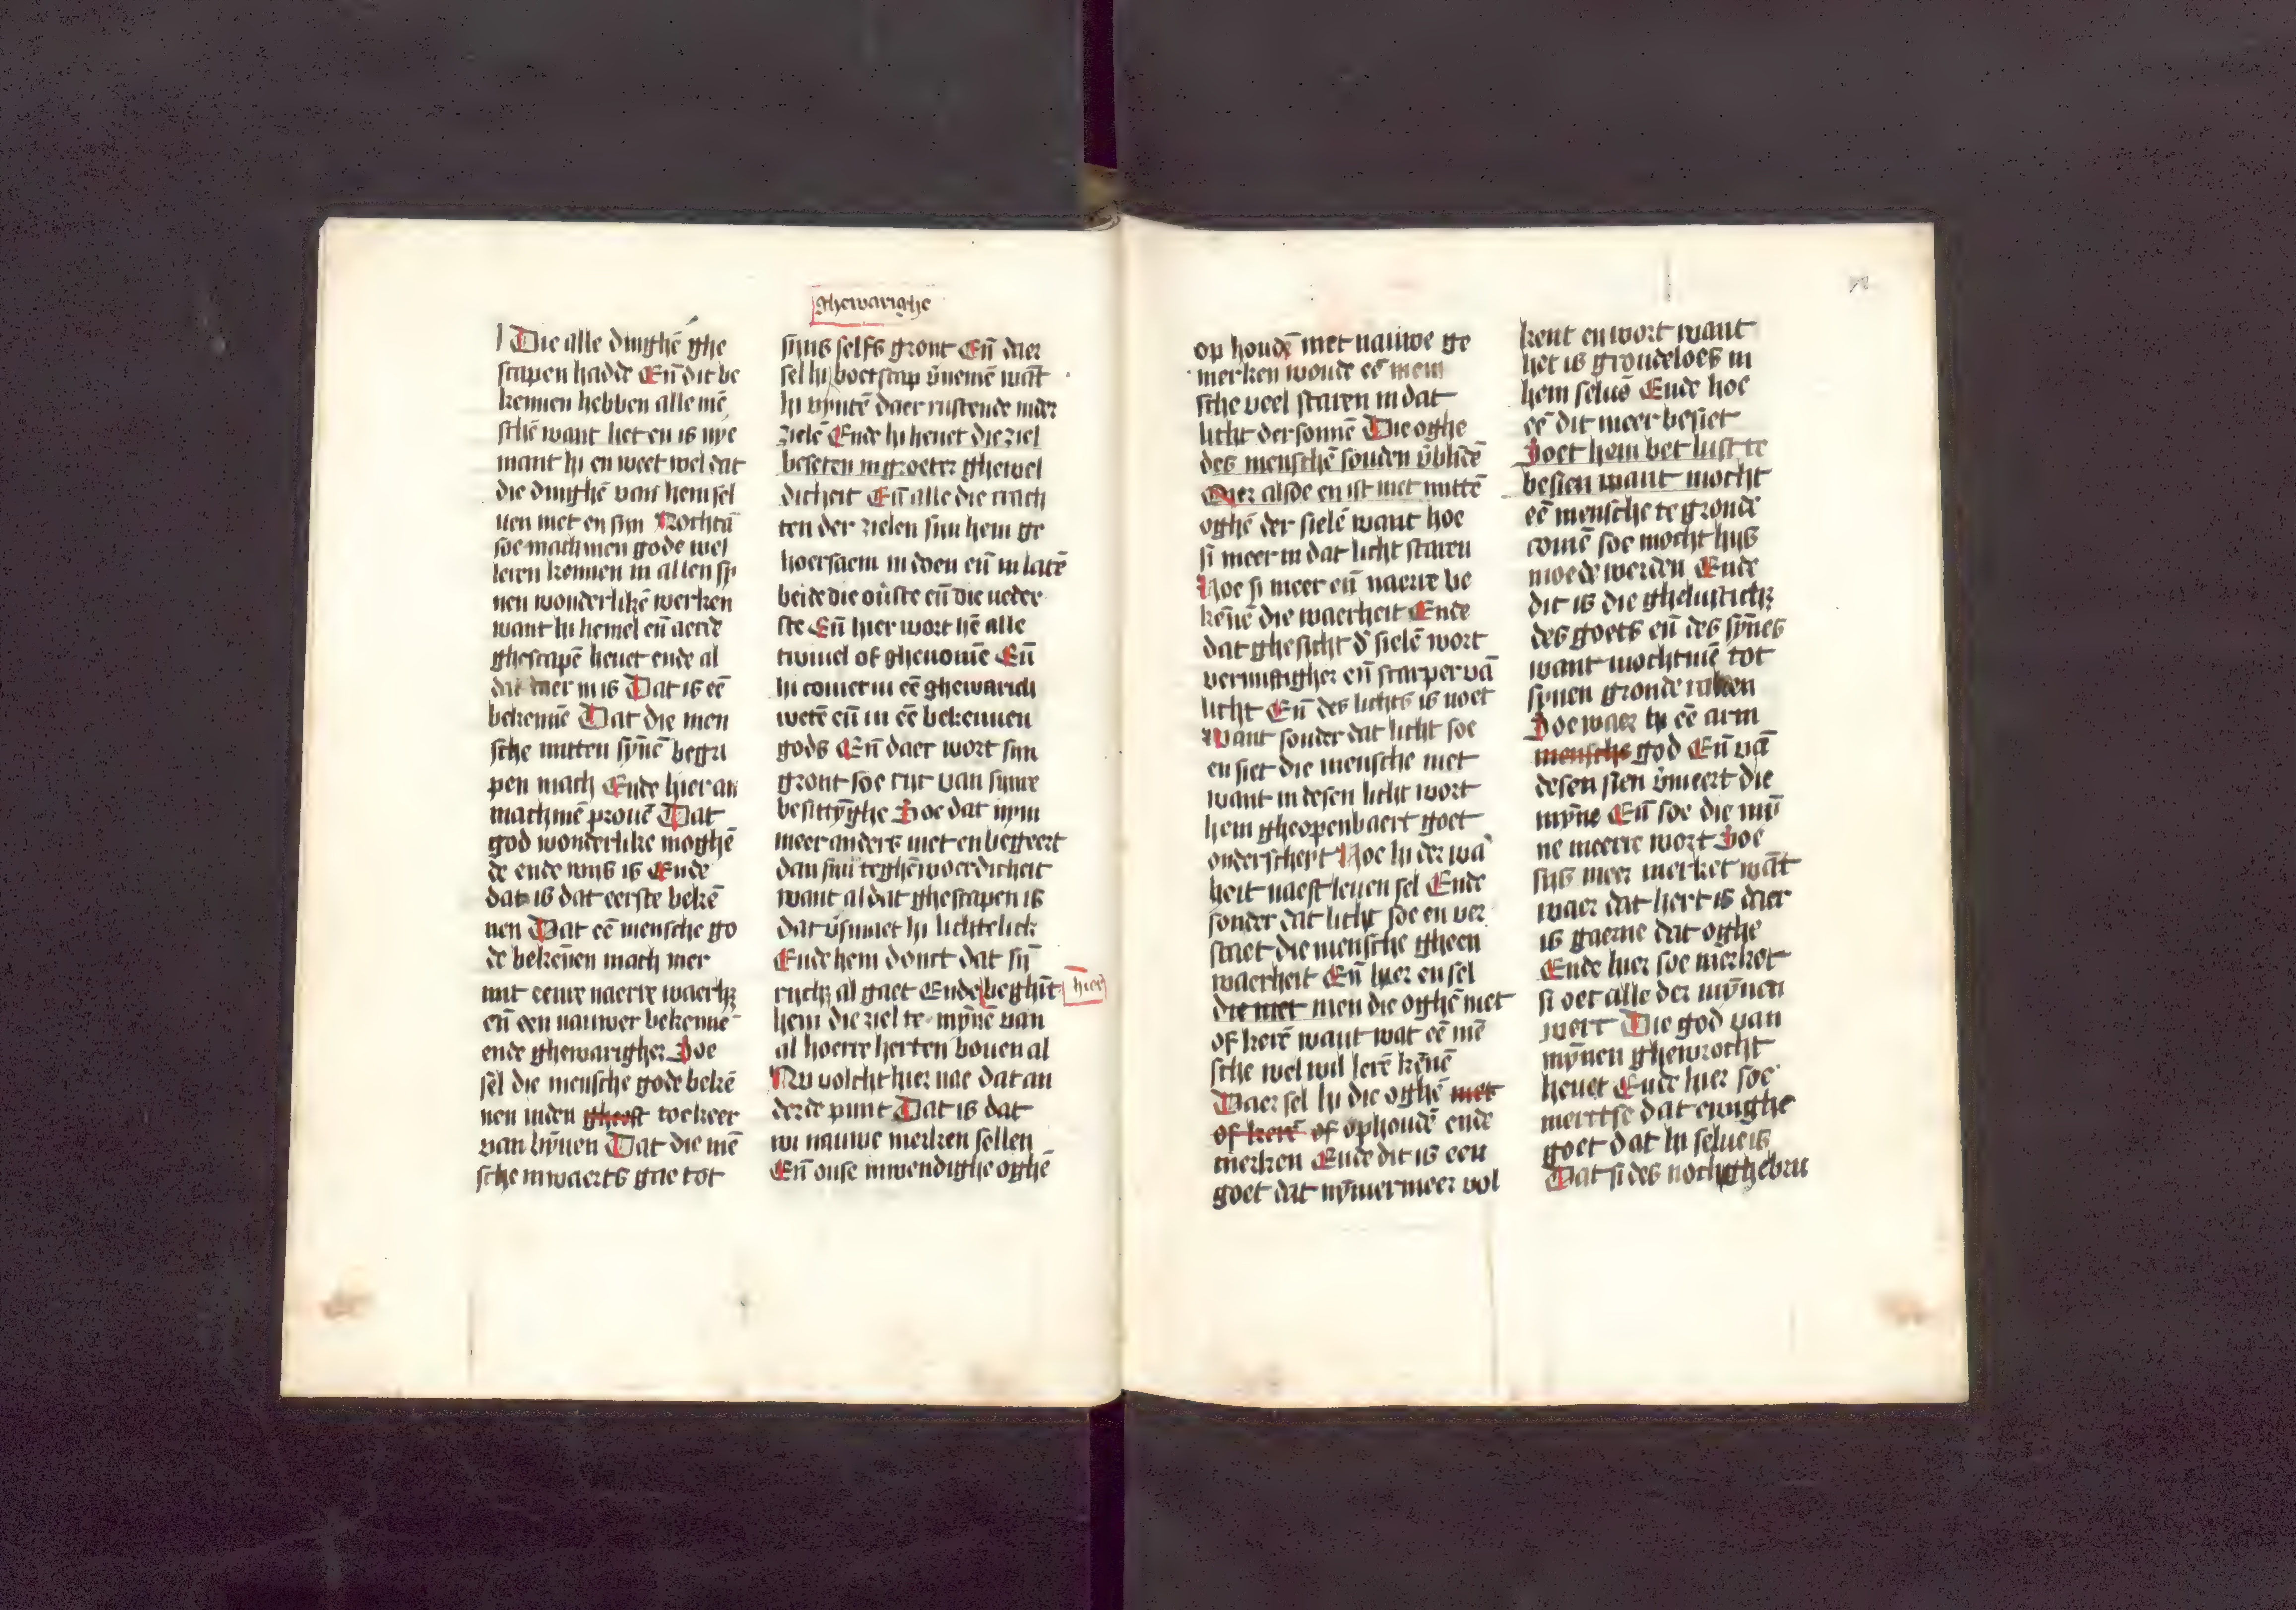 Die alle dinghē ghe
scapen hadde Eñ dit be
kennen hebben alle mē
schē want het en is nye
mant hi en weet wel dat
die dinghē van hem sel
uen niet en sijn Nochtā
soe mach men gode wel
leren kennen in allen si
nen wonderlikē werken
want hi hemel eñ aerde
ghescapē heuet ende al
dat daer in is Dat is eē
bekennē Dat die men
sche mitten sȳnē begri
pen mach Ende hier an
machmē prouē Dat
god wonderlike moghē
de ende wijs is Ende
dat is dat eerste bekē
nen Dat eē mensche go
de bekēnen mach mer
mit eenre naerre waerh
eñ een nauwer bekennē
ende ghewarigher Hoe
sel die mensche gode bekē
nen inden gheest toe keer
van bȳnen Dat die mē
sche inwaerts gae tot
ghewarighe
sijns selfs gront Eñ daer
sel hi boetscap v̄nemē wāt
hi vyntē daer rustende inder
zielē Ende hi heuet die ziel
beseten in groeter ghewel
dicheit Eñ alle die crach
ten der zielen sijn hem ge
hoersaem in doen eñ in latē
beide die ouste eñ die neder
ste Eñ hier wort hē alle
twiuel of ghenomē Eñ
hi comet in eē ghewarich
wetē eñ in eē bekennen
gods Eñ daer wort sijn
gront soe rijc van sijnre
besittȳghe Hoe dat nym
meer anders niet en begeert
dan sijn teghēwoerdicheit
want al dat ghescapen is
dat v̄smaet hi lichtelick
Ende hem donct dat sij
rijch al gaet Ende beghīt
hier
hem die ziel te mȳnē van
al hoerre herten bouen al
Nu volcht hier nae dat an
derde punt Dat is dat
wi nauwe merken sellen
Eñ onse inwendighe oghē
op houdē met nauwe ge
merken woude eē men
sche veel staren in dat
licht der sonnē Die oghe
des menschē souden v̄blidē
Mer alsoe en ist niet mittē
oghē der sielē want hoe
si meer in dat licht staren
Hoe si meer eñ naerre be
kēnē die waerheit Ende
dat ghesicht d̄ sielē wort
vernuftigher eñ scarper vā
licht Eñ des lichts is noet
Want sonder dat licht soe
en siet die mensche niet
want in desen licht wort
hem gheopenbaert goet
onderscheyt Hoe hi der wa
heit naest leuen sel Ende
sonder dat licht soe en ver
staet die mensche gheen
waerheit Eñ hier en sel
die niet men die oghē niet
of kerē want wat eē mē
sche wel wil lerē kēnē
Daer sel hi die oghē niet
of kerē of ophoudē ende
merken Ende dit is een
goet dat nȳmermeer vol
kent en wort want
het is grondeloes in
hem seluē Ende hoe
eē dit meer besiet
Hoet hem bet lust te
besien want mocht
eē mensche te gronde
comē soe mocht hijs
moede werden Ende
dit is die ghelustich
des goets eñ des sȳnes
want mochtmē tot
synen gronde raken
Hoe waer hi eē arm
mensche god Eñ vā
desen sien v̄meert die
mȳne Eñ soe die mȳ
ne meerre wort Hoe
sijs meer merket wāt
waer dat hert is daer
is gaerne dat oghe
Ende hier soe merket
si oec alle der mȳnen
werc Die god van
mȳnen ghewrocht
heuet Ende hier soe
mercse dat ewighe
goet dat hi selue is
Dat si des noch ghebru